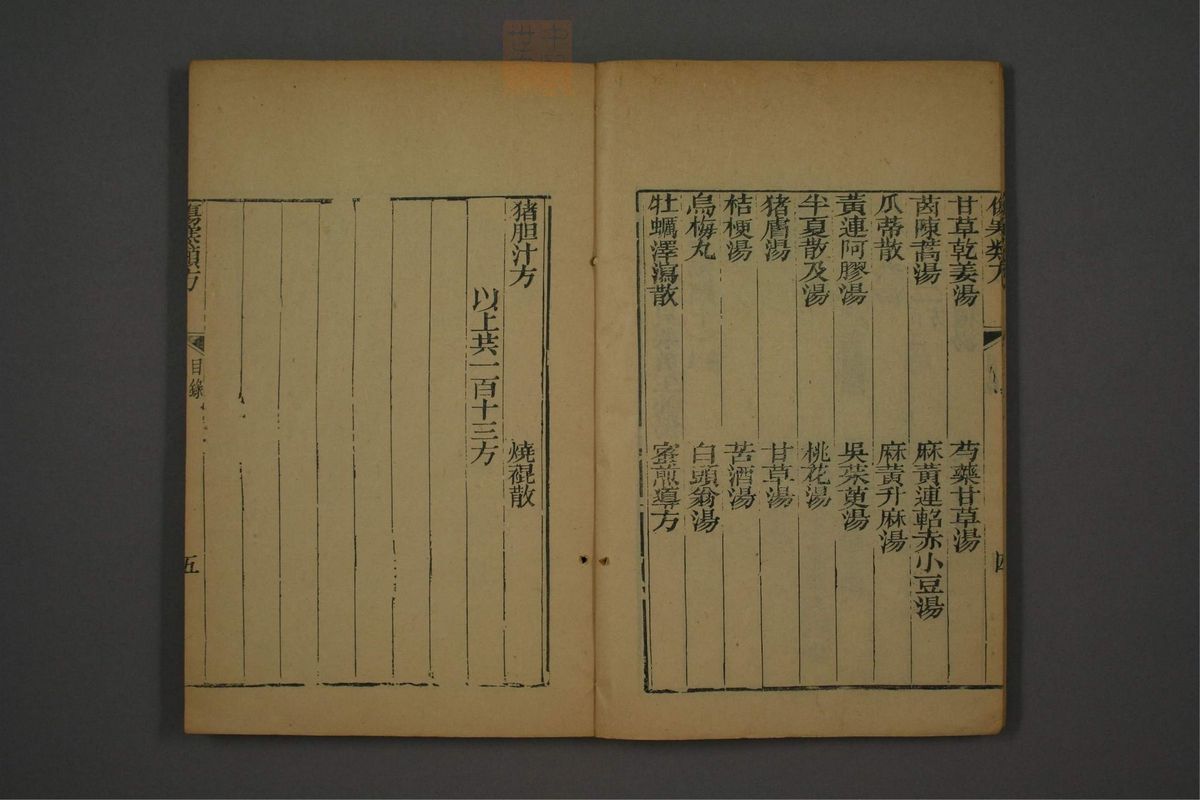 傷寒類方
四
甘草乾姜湯 芍藥甘草湯
茵陳蒿湯 麻黃連軺赤小豆湯
瓜蒂散 麻黃升麻湯
黃連阿膠湯 吳茱萸湯
半夏散及湯 桃花湯
猪膚湯 甘草湯
桔梗湯 苦酒湯
烏梅丸 白頭翁湯
牡蠣澤瀉散 蜜煎導方
猪胆汁方 燒裩散
以上共一百十三方
傷寒類方
目錄
五